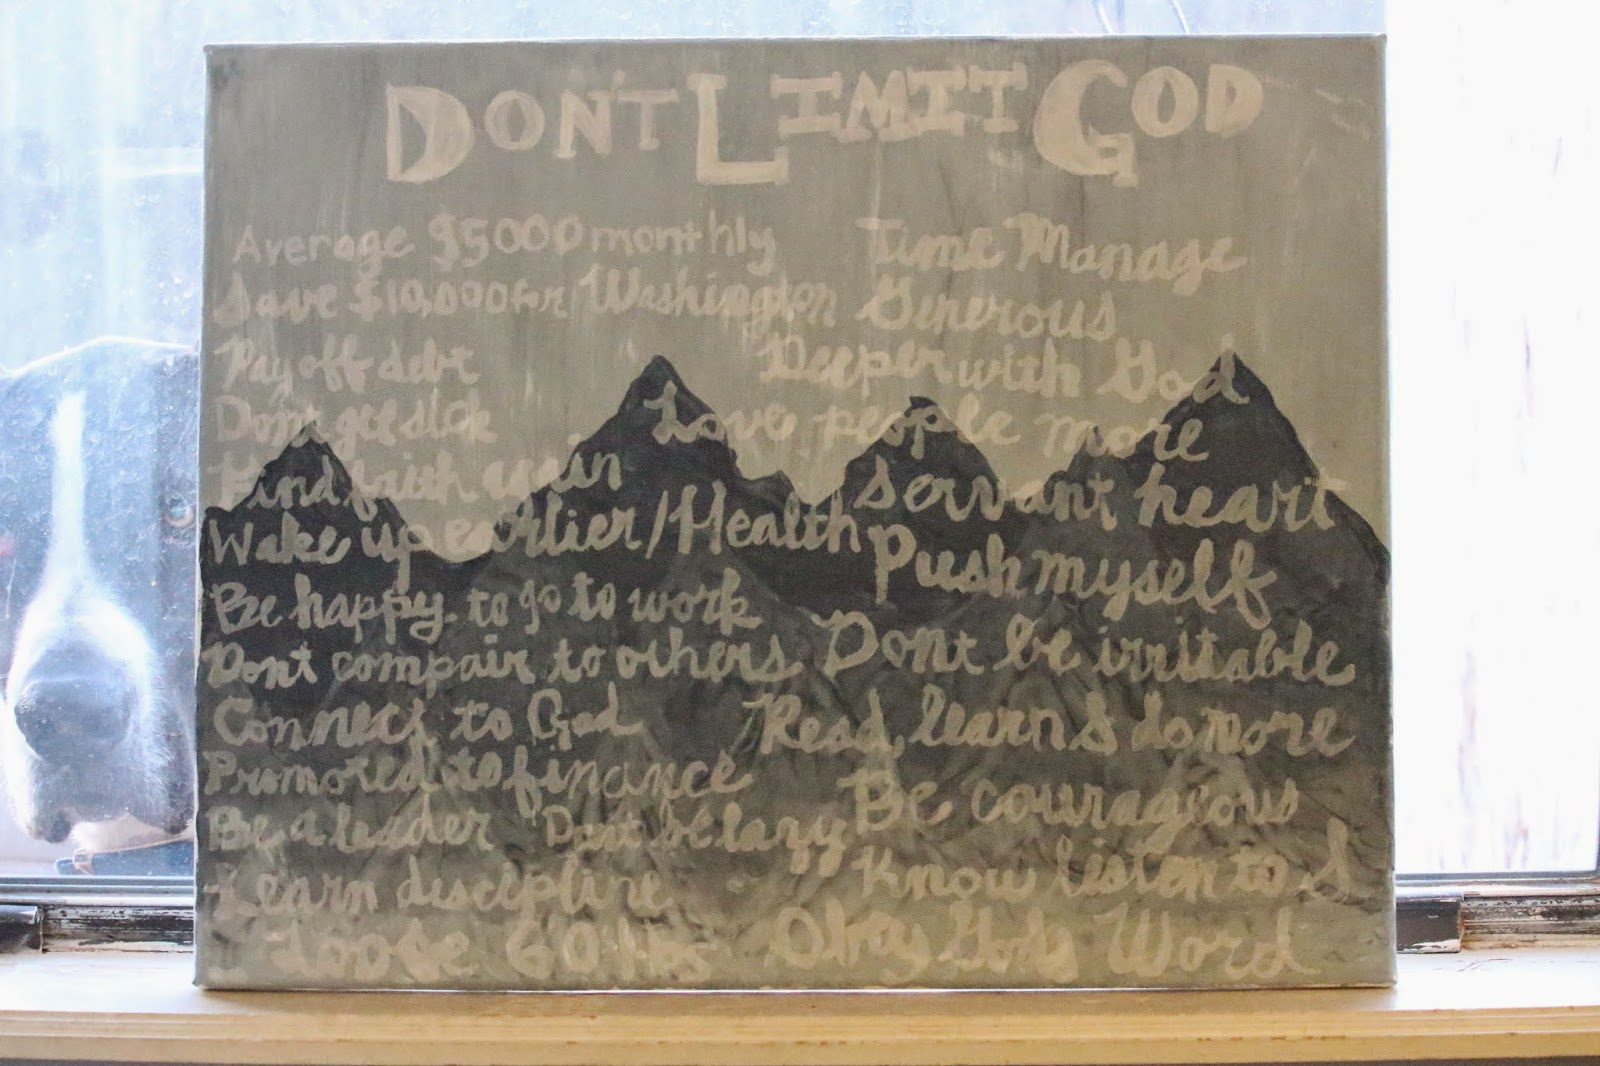 DON'T LIMIT GOD
Average $5000 monthly
Save $10,000 for Washington
Pay off debt
Dont get sick
Find faith again
Wake up earlier/Health
Be happy to go to work
Dont compair to others
Connect to God
Promoted to finance
Be a leader Dont be lazy
Learn discipline
Loose 60 lbs
Time Manage
Generous
Deeper with God
Love people more
Servant heart
Push myself
Dont be irritable
Read, learn & do more
Be courageous
Know listen to &
Obey Gods Word